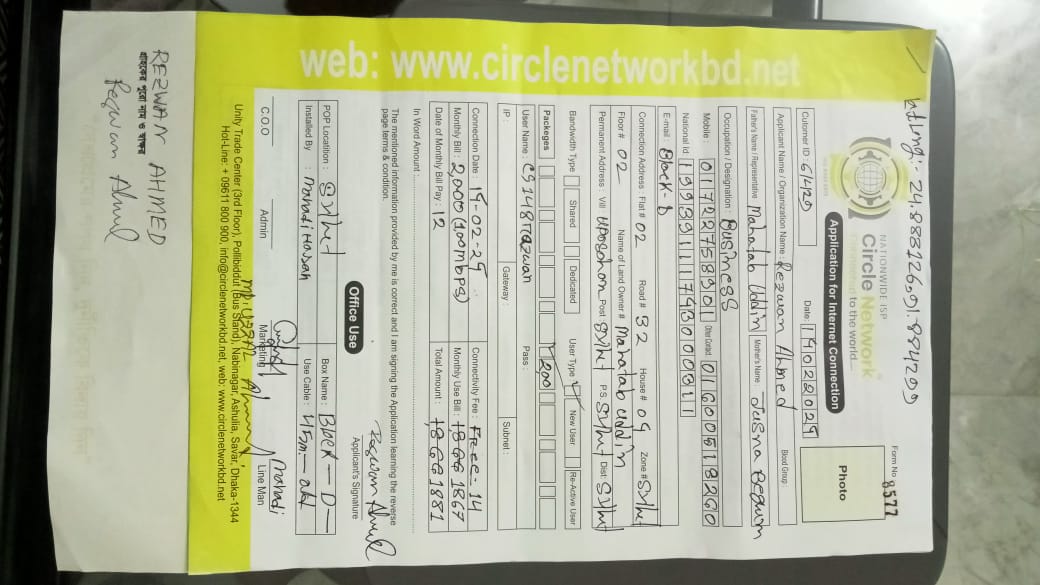 Wding:- 24.883126,91.884299
NATIONWIDE ISP
Circle Network
to the world...
Application for Internet Connection
Form No 8577
Photo
Cutomer ID : 61420
Date: 19022025
Applicant Name / Organization Name : Rezwan Ahmed
Blood Group :
Father's Name / Representative : Mahatab Uddin
Mother's Name : Jusna Begum
Occupation / Designation : Business
Mobile : 01727583301
Other Contact 01600518260
National Id
E-mail : Block-D
Connection Address : Flat # 02
Road # 32
House # 09
Zone # Sylhet
Floor # 02
Name of Land Owner # Mahatab uddin
Permanent Address : Vill Uposhon Post Sylhet P.S Sylhet Dist Sylhet
Bandwidth Type
Shared
Dedicated
User Type
New User
Re-Active User
Packeges
User Name :
Pass :
IP :
Gateway :
Subnet :
Connection Date : 19-02-25
Connectivity Fee : Free - 14
Monthly Bill : 2,000 (100mbps)
Monthly Use Bill : 1867
Date of Monthly Bill Pay : 12
Total Amount : 1881
In Word Amount :
The mentioned information provided by me is correct and I am signing the Application learning the reverse
page terms & condition.
Rezwan Ahmed
Applicant's Signature
Office Use
POP Localtion : Sylhet
Box Name : Block - D -
Installed By : Mahadi Hasan
Use Cable : 45m - old
C.O.O
Admin
Marketing
Mahadi
Line Man
Unity Trade Center (3rd Floor), Pollibiddut (Bus Stand), Nabinagar, Ashulia, Savar, Dhaka-1344
Hot-Line: + 09611 800 900, info@circlenetworkbd.net, web: www.circlenetworkbd.net
web: www.circlenetworkbd.net
REZWAN AHMED
গ্রাহকের পুরো নাম ও স্বাক্ষর
Rezwan Ahmed